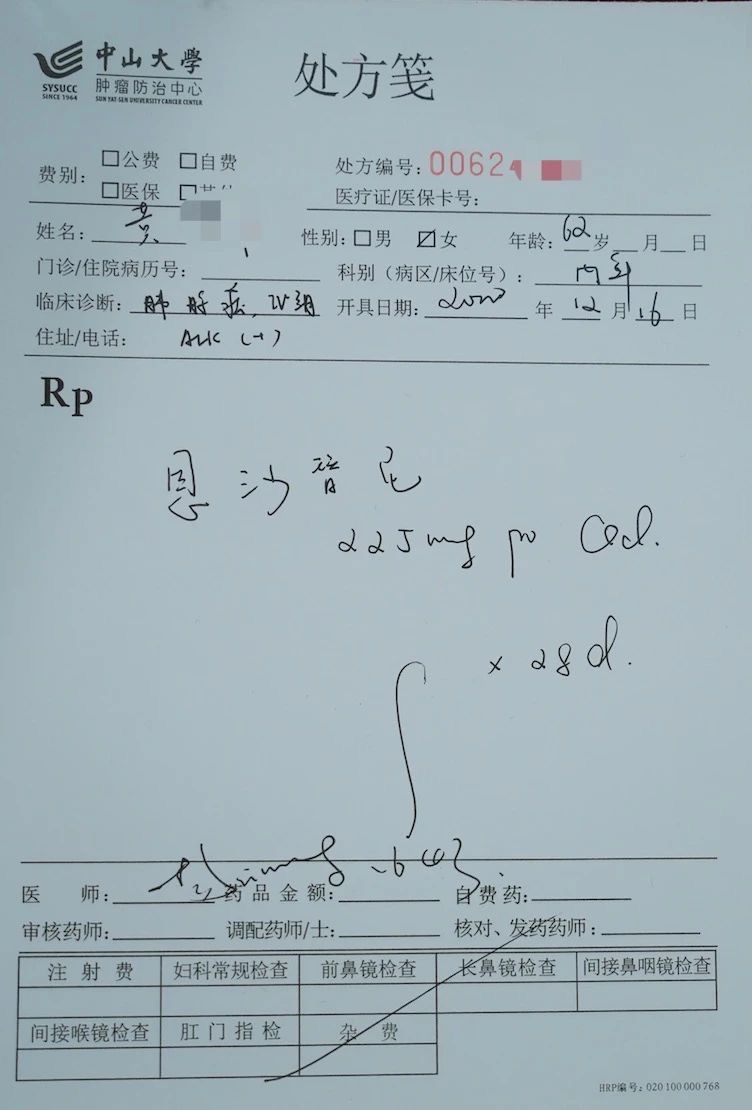 中山大學
肿瘤防治中心
SYSUCC
SINCE 1964
SUN YAT-SEN UNIVERSITY CANCER CENTER
处方笺
费别: □公费 □自费
□医保
处方编号: 0062
医疗证/医保卡号:
姓名: 黄 性别: □男 ☑女 年龄: 62岁 月 日
门诊/住院病历号: 科别（病区/床位号）: 内科
临床诊断: 肺腺癌, IV期 开具日期: 2020 年 12 月 16 日
住址/电话: ALK (+)
Rp
恩沙替尼
225mg po Qd.
× 28d.
医 师: 药品金额: 自费药:
审核药师: 调配药师/士: 核对、发药药师:
注 射 费 妇科常规检查 前鼻镜检查 长鼻镜检查 间接鼻咽镜检查
间接喉镜检查 肛门指检 杂 费
HRP编号: 020 100 000 768